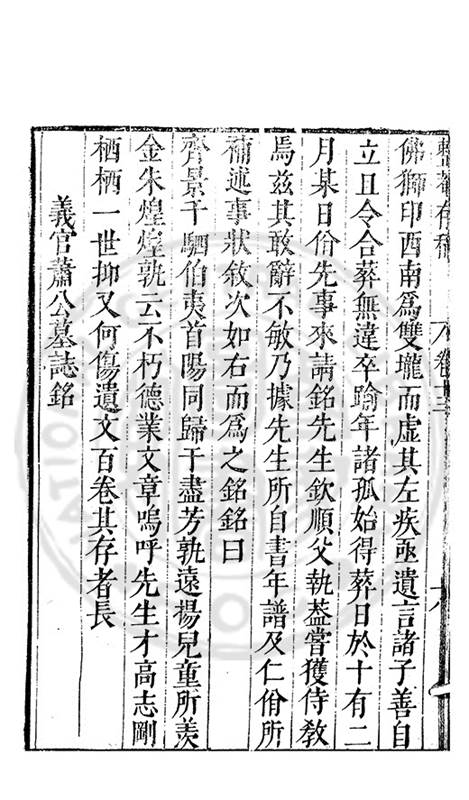 整菴存稿 卷十三
佛獅印西南爲雙壠而虛其左疾亟遺言諸子善自
立且令合葬無違卒踰年諸孤始得葬日於十有二
月某日佾先事來請銘先生欽順父執葢嘗獲侍敎
焉兹其敢辭不敏乃據先生所自書年譜及仁佾所
補述事狀敘次如右而爲之銘銘曰
齊景千駟伯夷首陽同歸于盡芳孰遠揚兒童所羨
金朱煌煌孰云不朽德業文章嗚呼先生才高志剛
栖栖一世抑又何傷遺文百卷其存者長
義官蕭公墓誌銘